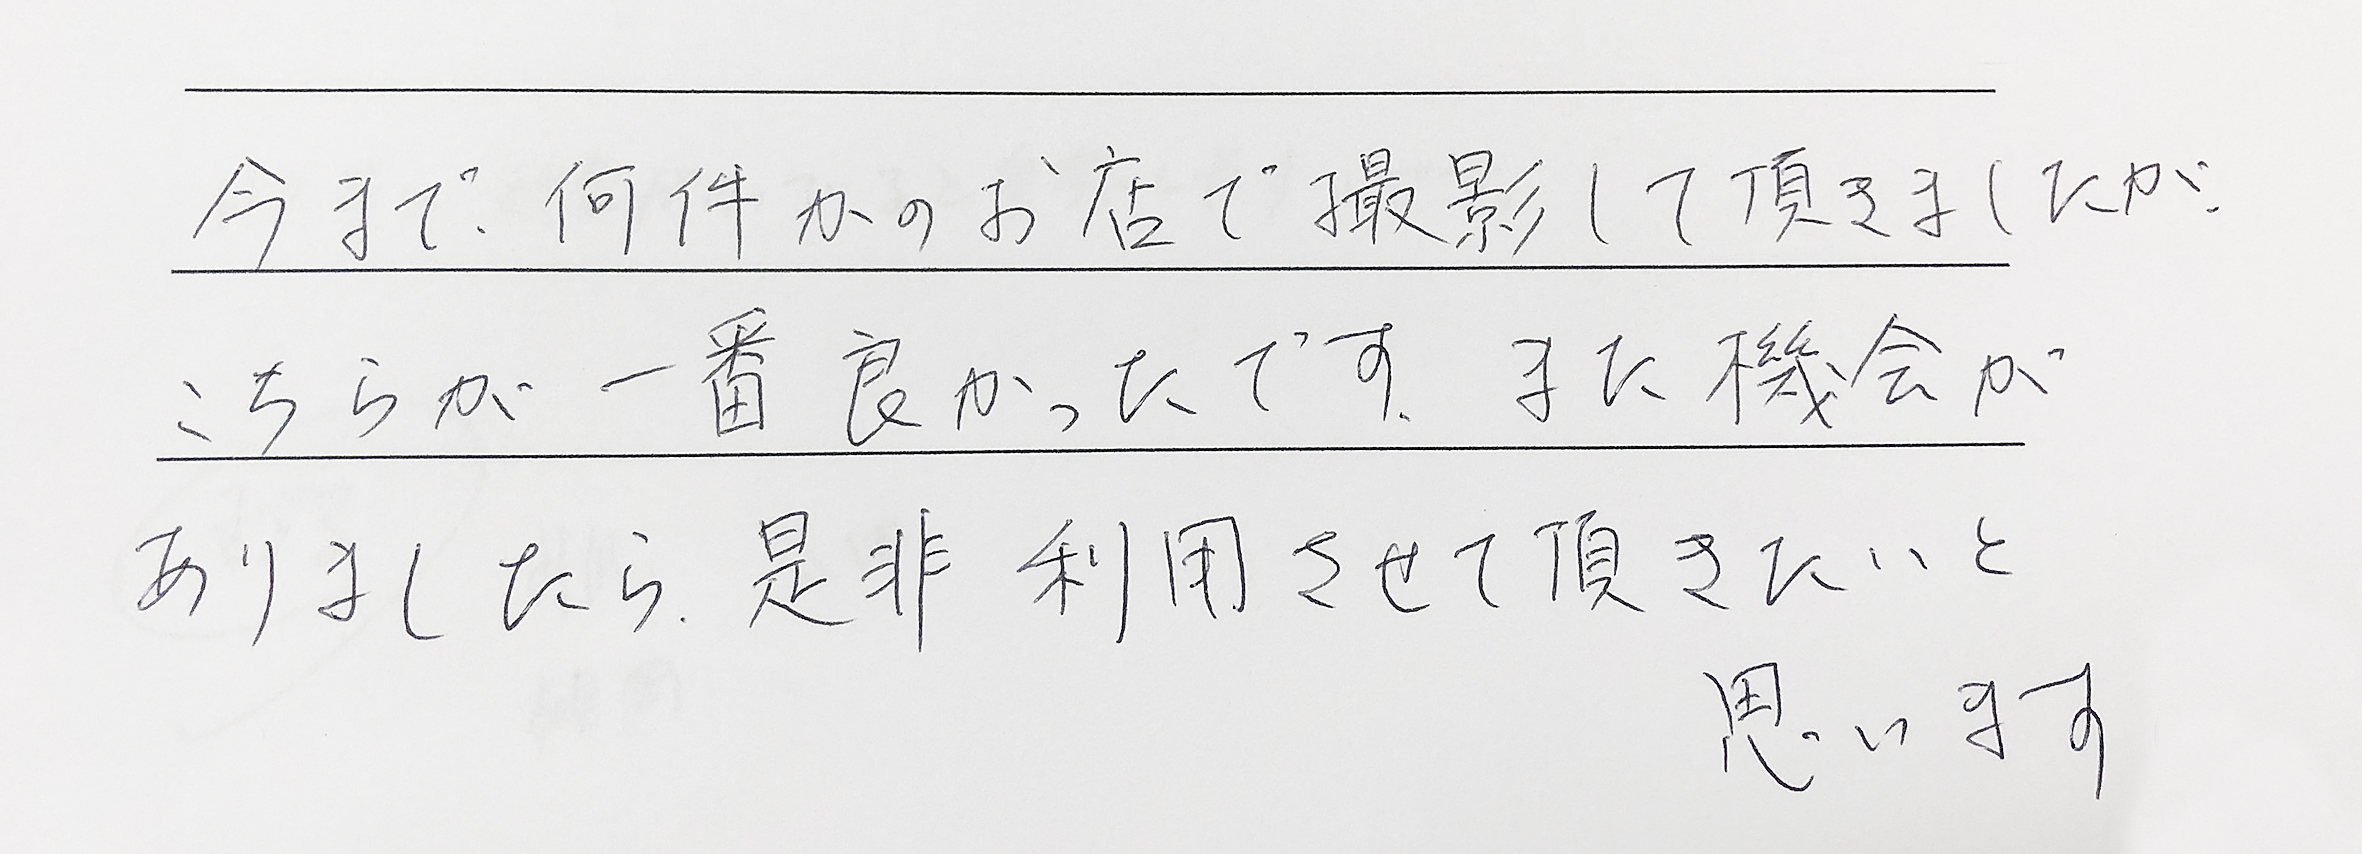 今まで、何件かのお店で撮影して頂きましたが、
こちらが一番良かったです。また機会が
ありましたら、是非利用させて頂きたいと
思います